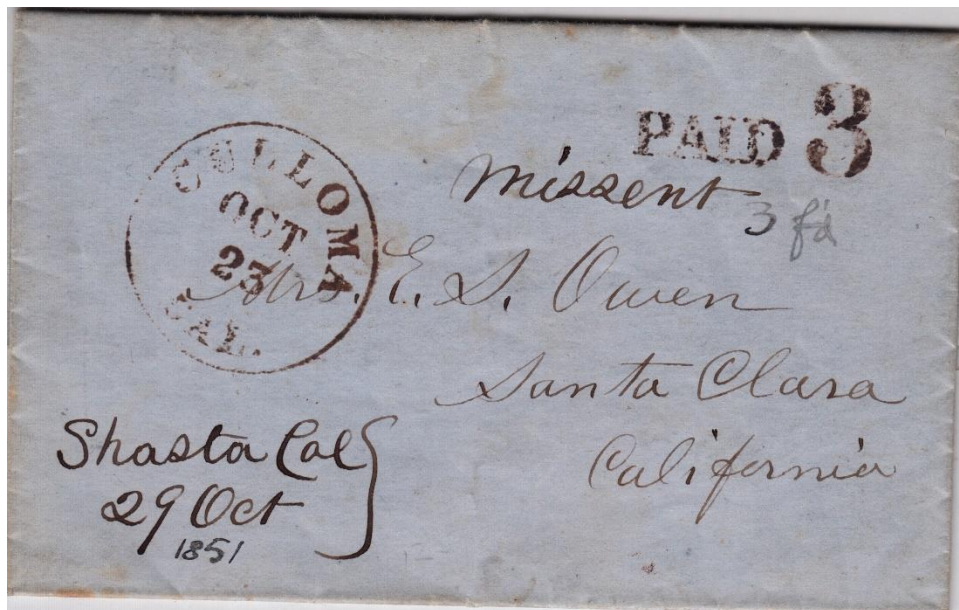 PAID 3
missent
3 fd
CULLOMA
OCT
23
CAL.
Mrs. E. S. Owen
Santa Clara
California
Shasta Cal
29 Oct
1851